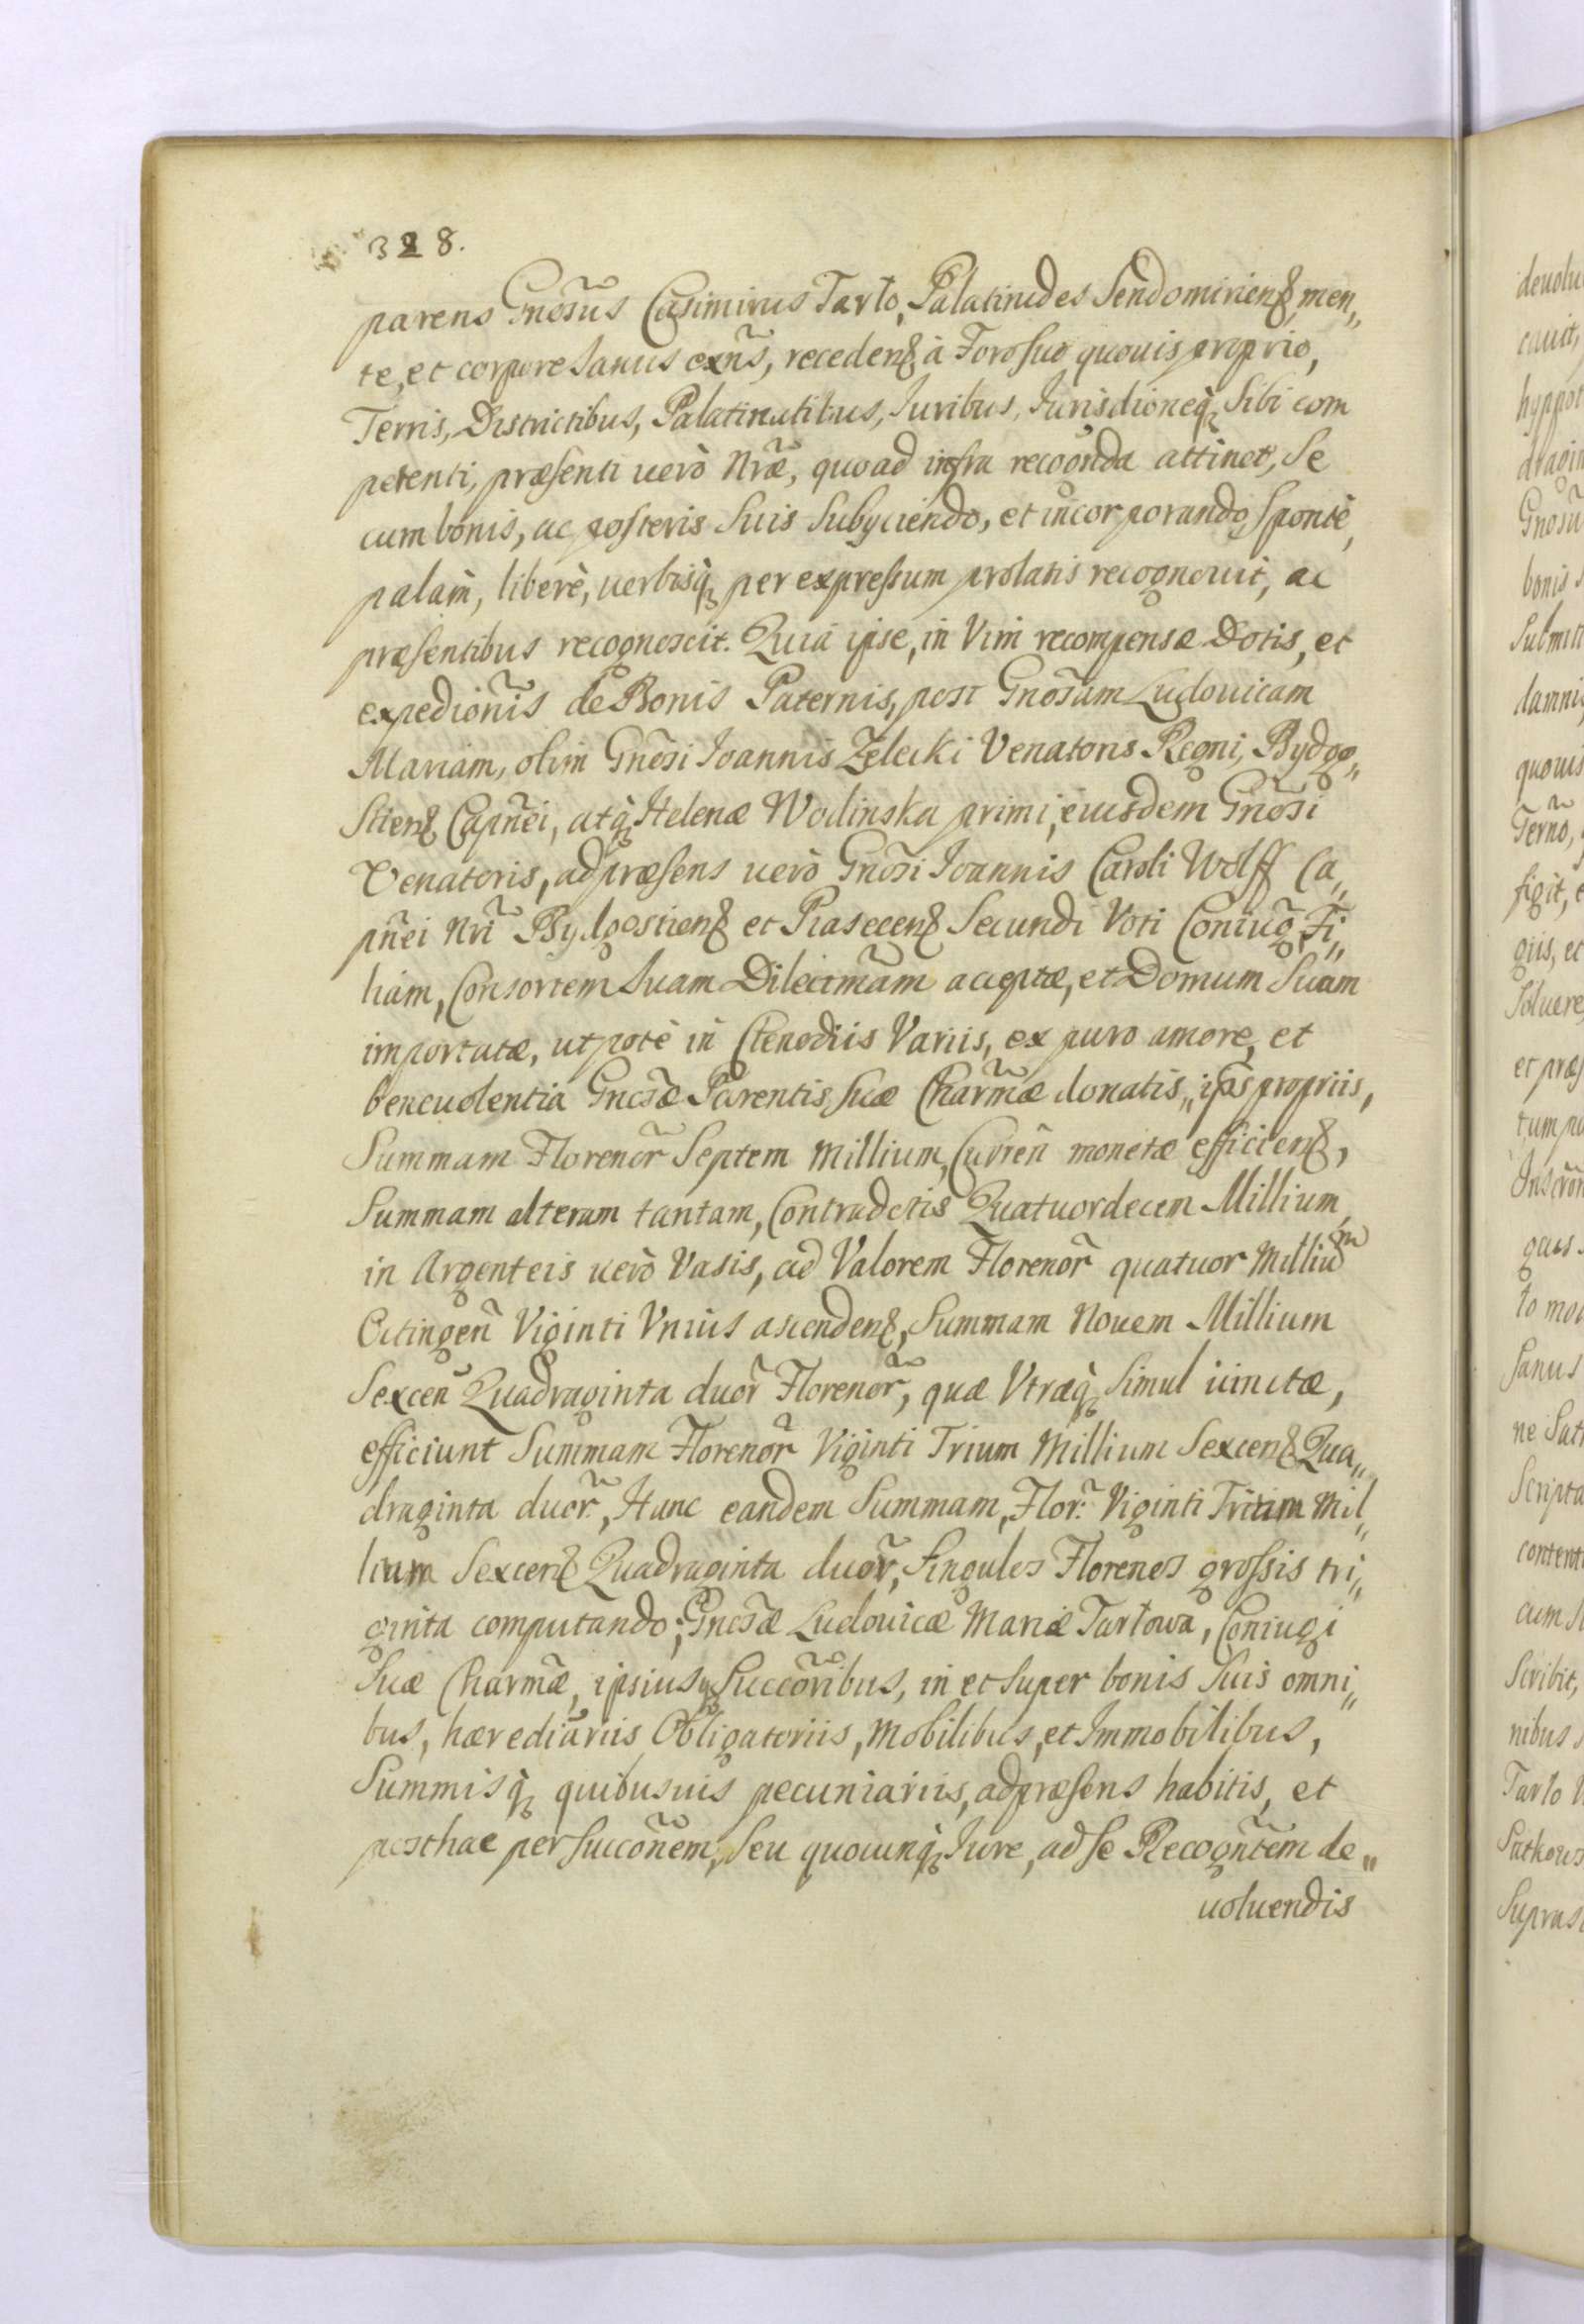 328.
parens Gnosus Casimirus Tarło, Palatinides Sendomiriens, men„
te, et corpore sanus exñs, recedens à Foro suo quouis proprio,
Terris, Districtibus, Palatinatibus, Iuribus, Iurisdioneq, sibi com
petenti, præsenti uerò Nræ, quoad infra recognda attinet, Se
cum bonis, ac posteris suis subyciendo, et incorporando, spontè,
palàm, liberè, uerbisq, per expressum prolatis recognouit, ac
præsentibus recognoscit. Quia ipse, in Vim recompensæ Dotis, et
expedionis de Bonis Paternis, post Gnosam Ludouicam
Mariam, olim Gnosi Ioannis Zelecki Venatoris Regni, Bydgo„
stiens Capnei, atq, Helenæ Wodinska primi, eiusdem Gnosi
Venatoris, ad præsens uerò Gnosi Ioannis Caroli Wolff Ca„
pnei Nri Bydgostiens et Piasecens Secundi Voti Coniug, Fi„
liam, Consortem suam Dilectmam acceptæ, et Domum suam
importatæ, utpotè in Clenodiis Variis, ex puro amore, et
beneuolentia Gnosæ Parentis suæ Charmæ donatis„ ipsis propriis,
Summam Florenor Septem Millium, Curren monetæ efficiens,
Summam alteram tantam, Contradotis Quatuordecem Millium,
in Argenteis uerò Vasis, ad Valorem Florenor quatuor Millium
Octingen Viginti Vnius ascendens, Summam Nouem Millium
Sexcen Quadraginta duor Florenor, quæ Vtræq, simul iunctæ,
efficiunt Summam Florenor Viginti Trium Millium Sexcens Qua„
draginta duor, Hanc eandem Summam, Flor: Viginti Trium Mil„
lium Sexcens Quadraginta duor, singulos Florenos grossis tri„
ginta computando; Gnosæ Ludouicæ Mariæ Tarłowa, Coniugi
suæ Charmæ, ipsiusq Succoribus, in et super bonis suis omni„
bus, hærediariis Obligatoriis, Mobilibus, et Immobilibus,
Summisq, quibusuis pecuniariis, ad præsens habitis, et
posthac per succonem, seu quocunq, Iure, ad se Recogntem de„
uoluendis